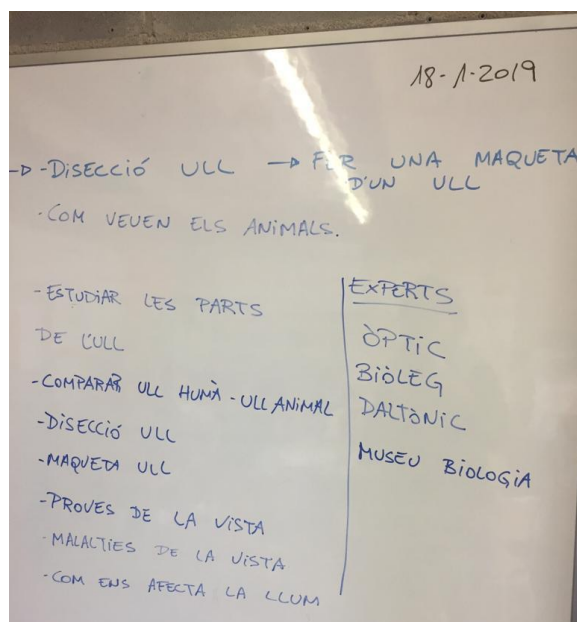 18-1-2019
→ -DISECCIÓ ULL → FER UNA MAQUETA
D'UN ULL
·COM VEUEN ELS ANIMALS.
-ESTUDIAR LES PARTS
DE L'ULL
-COMPARAR ULL HUMÀ - ULL ANIMAL
-DISECCIÓ ULL
-MAQUETA ULL
-PROVES DE LA VISTA
·MALALTIES DE LA VISTA
-COM ENS AFECTA LA LLUM
EXPERTS
ÒPTIC
BIÒLEG
DALTÒNIC
MUSEU BIOLOGIA